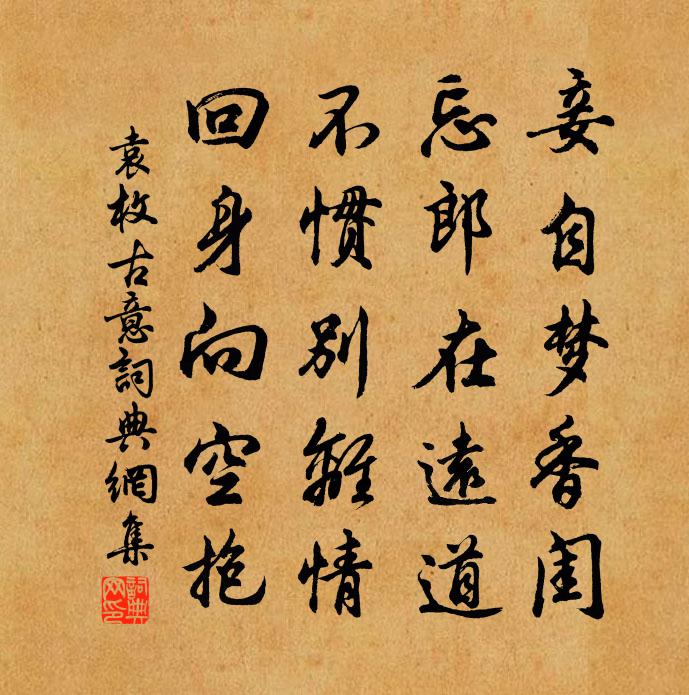 妾自梦香闺
忘郎在遠道
不惯别離情
回身向空抱
袁枚古意詞典網集
詞典网印